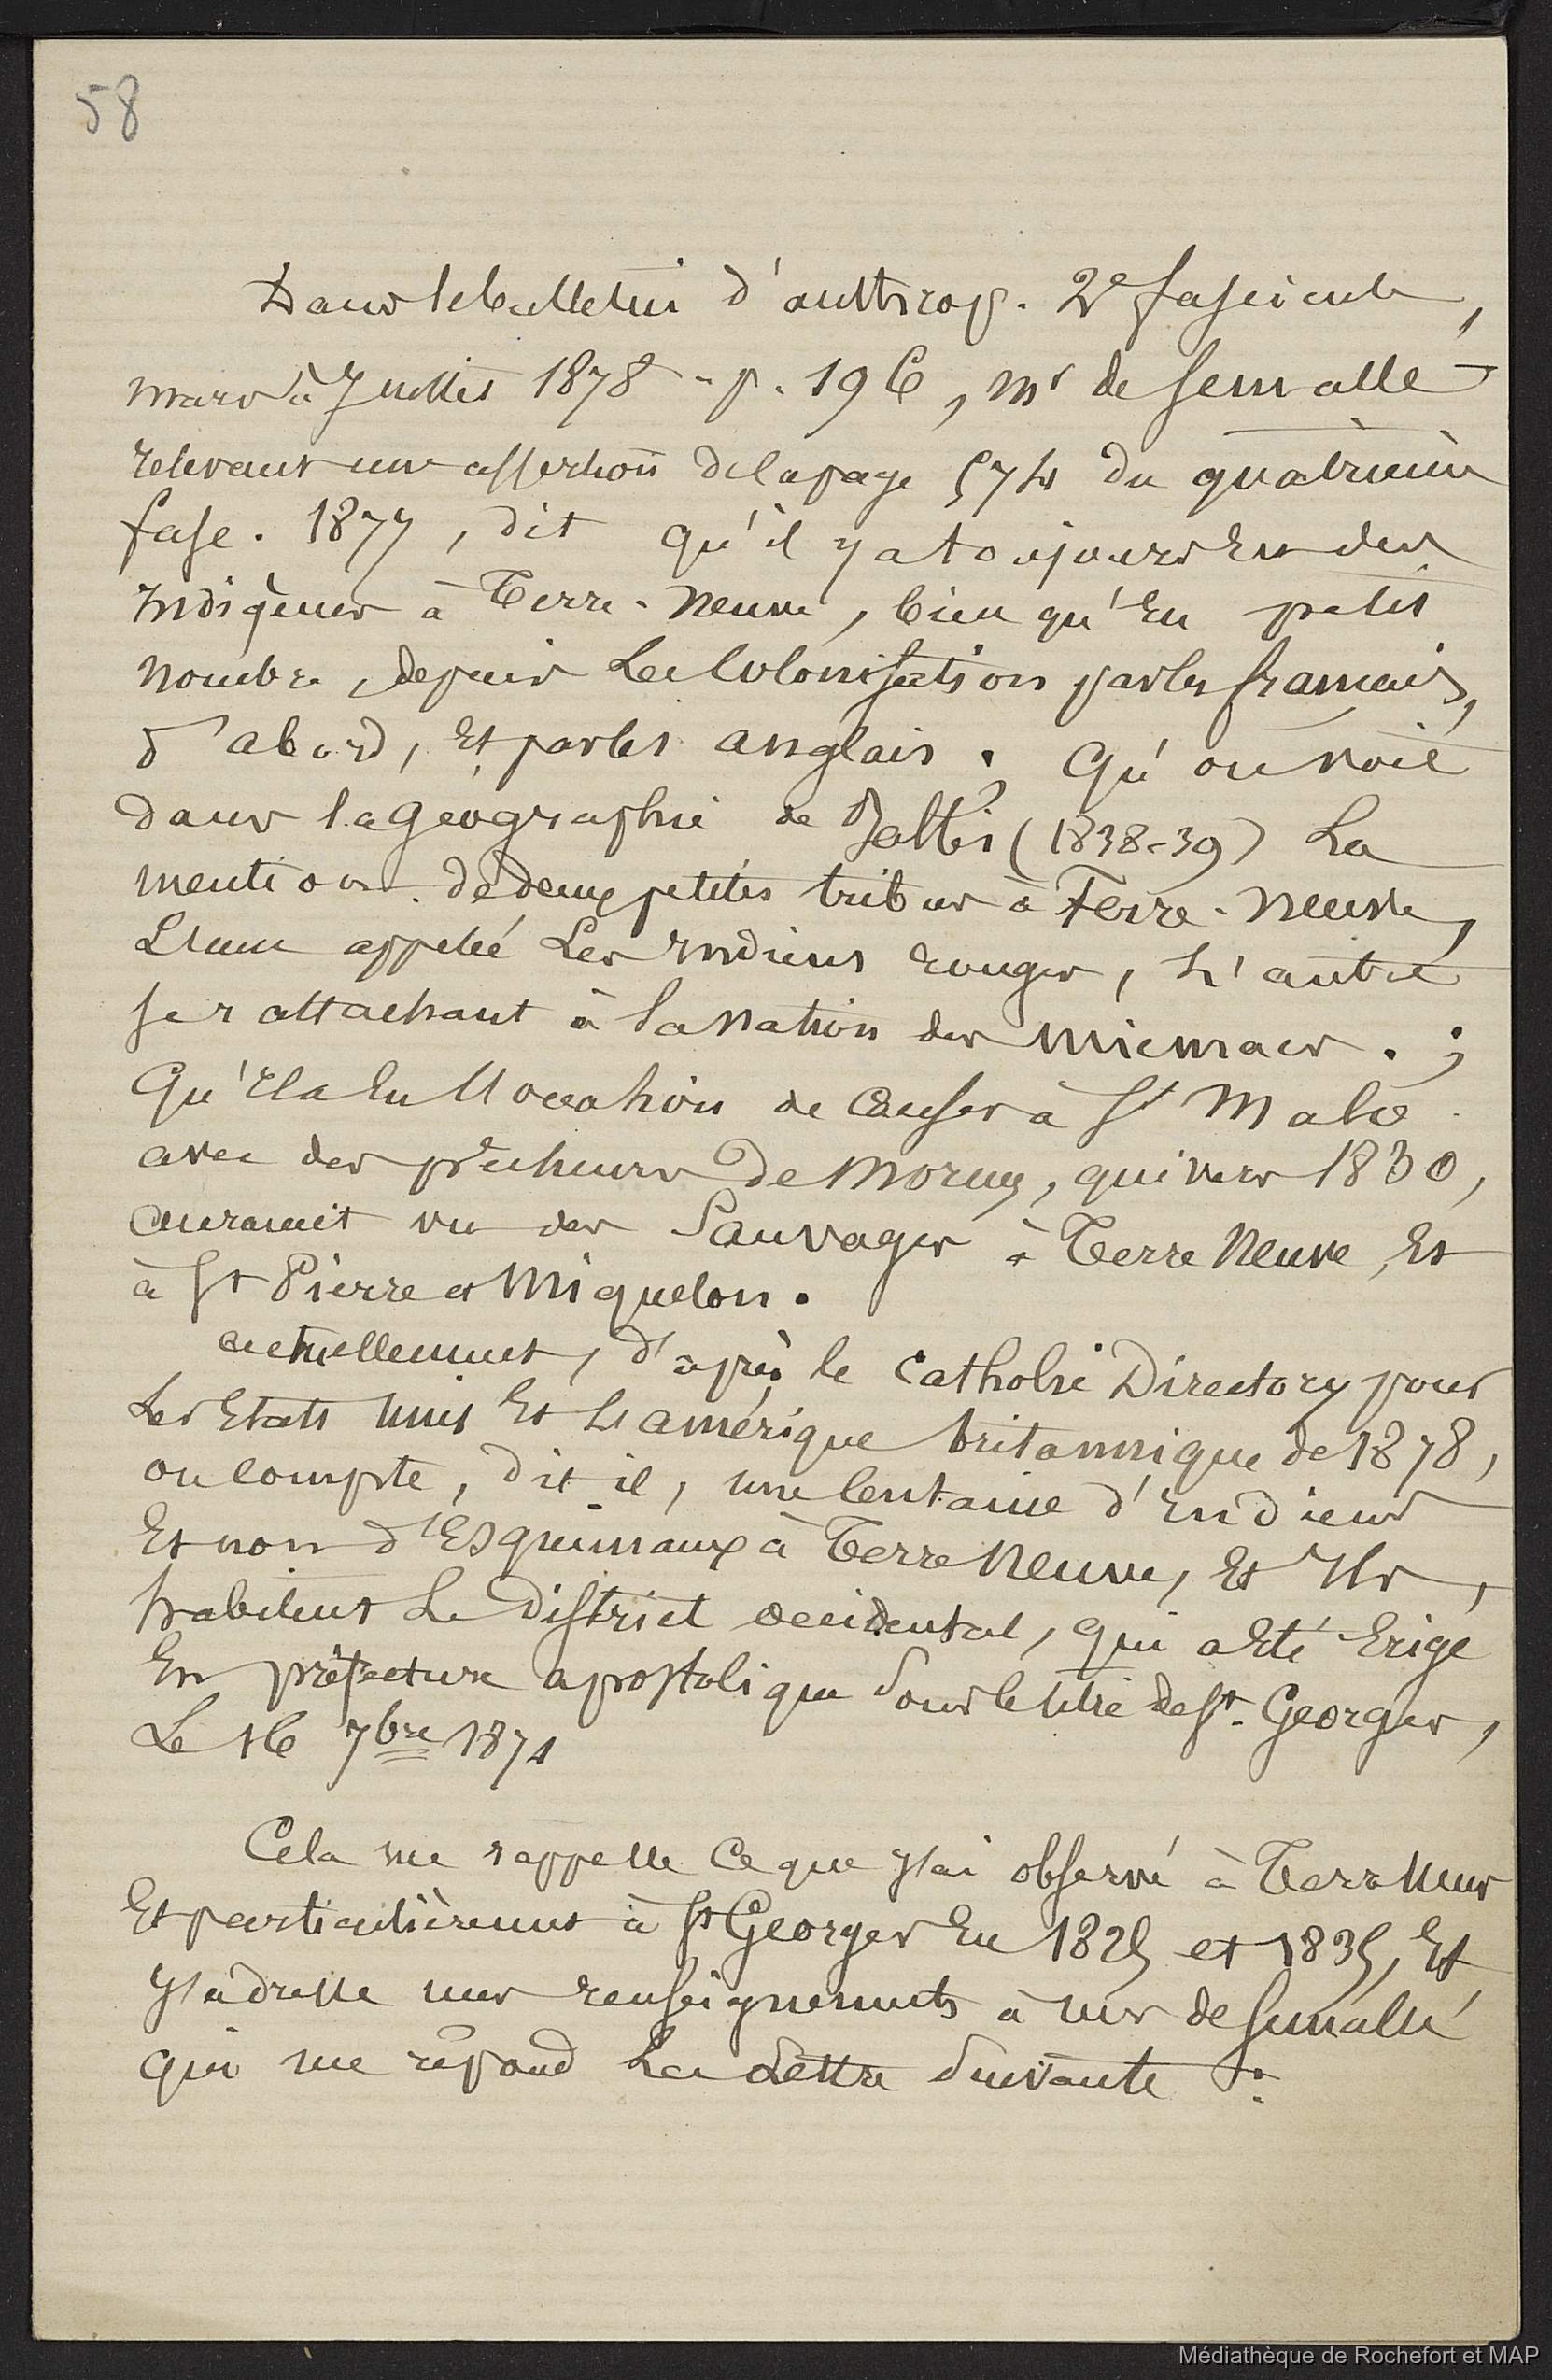 58
Dans le bulletin d'anthrop. 2e fascicule,
mars à Juillet 1878 - p. 196, mr de Semallé
relevant une assertion de la page 574 du quatrième
fasc. 1877, dit qu'il y a toujours eu des
Indigènes à Terre-Neuve, bien qu'en petit
nombre, depuis la Colonisation par les français,
d'abord, et par les anglais ; qu'on voit
dans la géographie de Balbi (1838-39) la
mention de deux petites tribus à Terre-Neuve,
L'une appelée Les Indiens rouges, L'autre
se rattachant à la nation des micmacs. ;
Qu'il a eu l'occasion de causer à St Malo
avec des pêcheurs de Morue, qui vers 1830,
auraient vu des Sauvages à Terre Neuve, et
à St Pierre et Miquelon.
actuellement, d'après le Catholic Directory pour
Les Etats Unis et L'amérique britannique de 1878,
on compte, dit-il, une centaine d'Indiens
et non d'Esquimaux à Terre Neuve, et Ils,
habitent Le District occidental, qui a été Erigé
En préfecture apostolique Sous le titre de St. Georges,
Le 16 7bre 1871
Cela me rappelle ce que J'ai observé à Terre Neuve
Et particulièrement à St Georges En 1825 et 1835, Et
J'adresse mes renseignements à mr de Semallé
qui me répond La Lettre Suivante :
Médiathèque de Rochefort et MAP